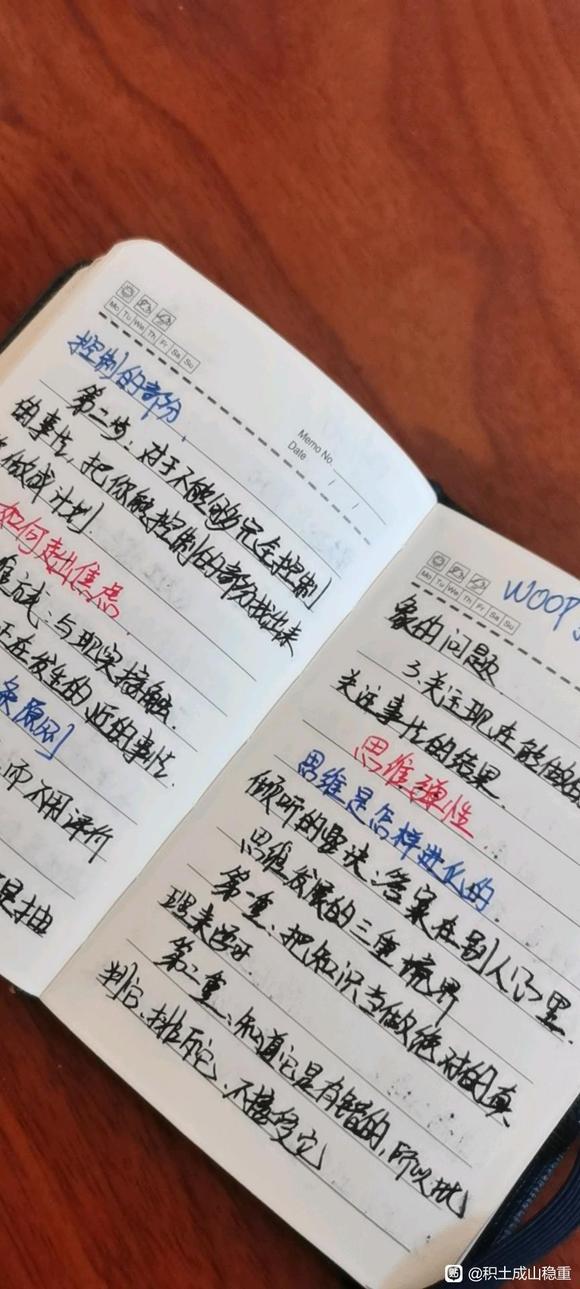 Mo Tu We Th Fr Sa Su
Memo No.
Date / /
控制的部分.
第二步:对于不能够完全控制
的事情,把你能控制的部分找出来
做成计划
如何走出焦虑
应试:与现实接触.
正在发生的近的事情.
条原则
而不用评价
是抽
Mo Tu We Th Fr Sa Su
WOOP
象的问题
3.关注现在能做的
关注事情的结果.
思维弹性
思维是怎样进化的.
倾听的要诀:答案在别人心里.
思维发展的三重境界
第一重、把知识当做绝对的真
理来遵守.
第二重、知道它是有错的,所以批
判它、排斥它、不接受它
@积土成山稳重